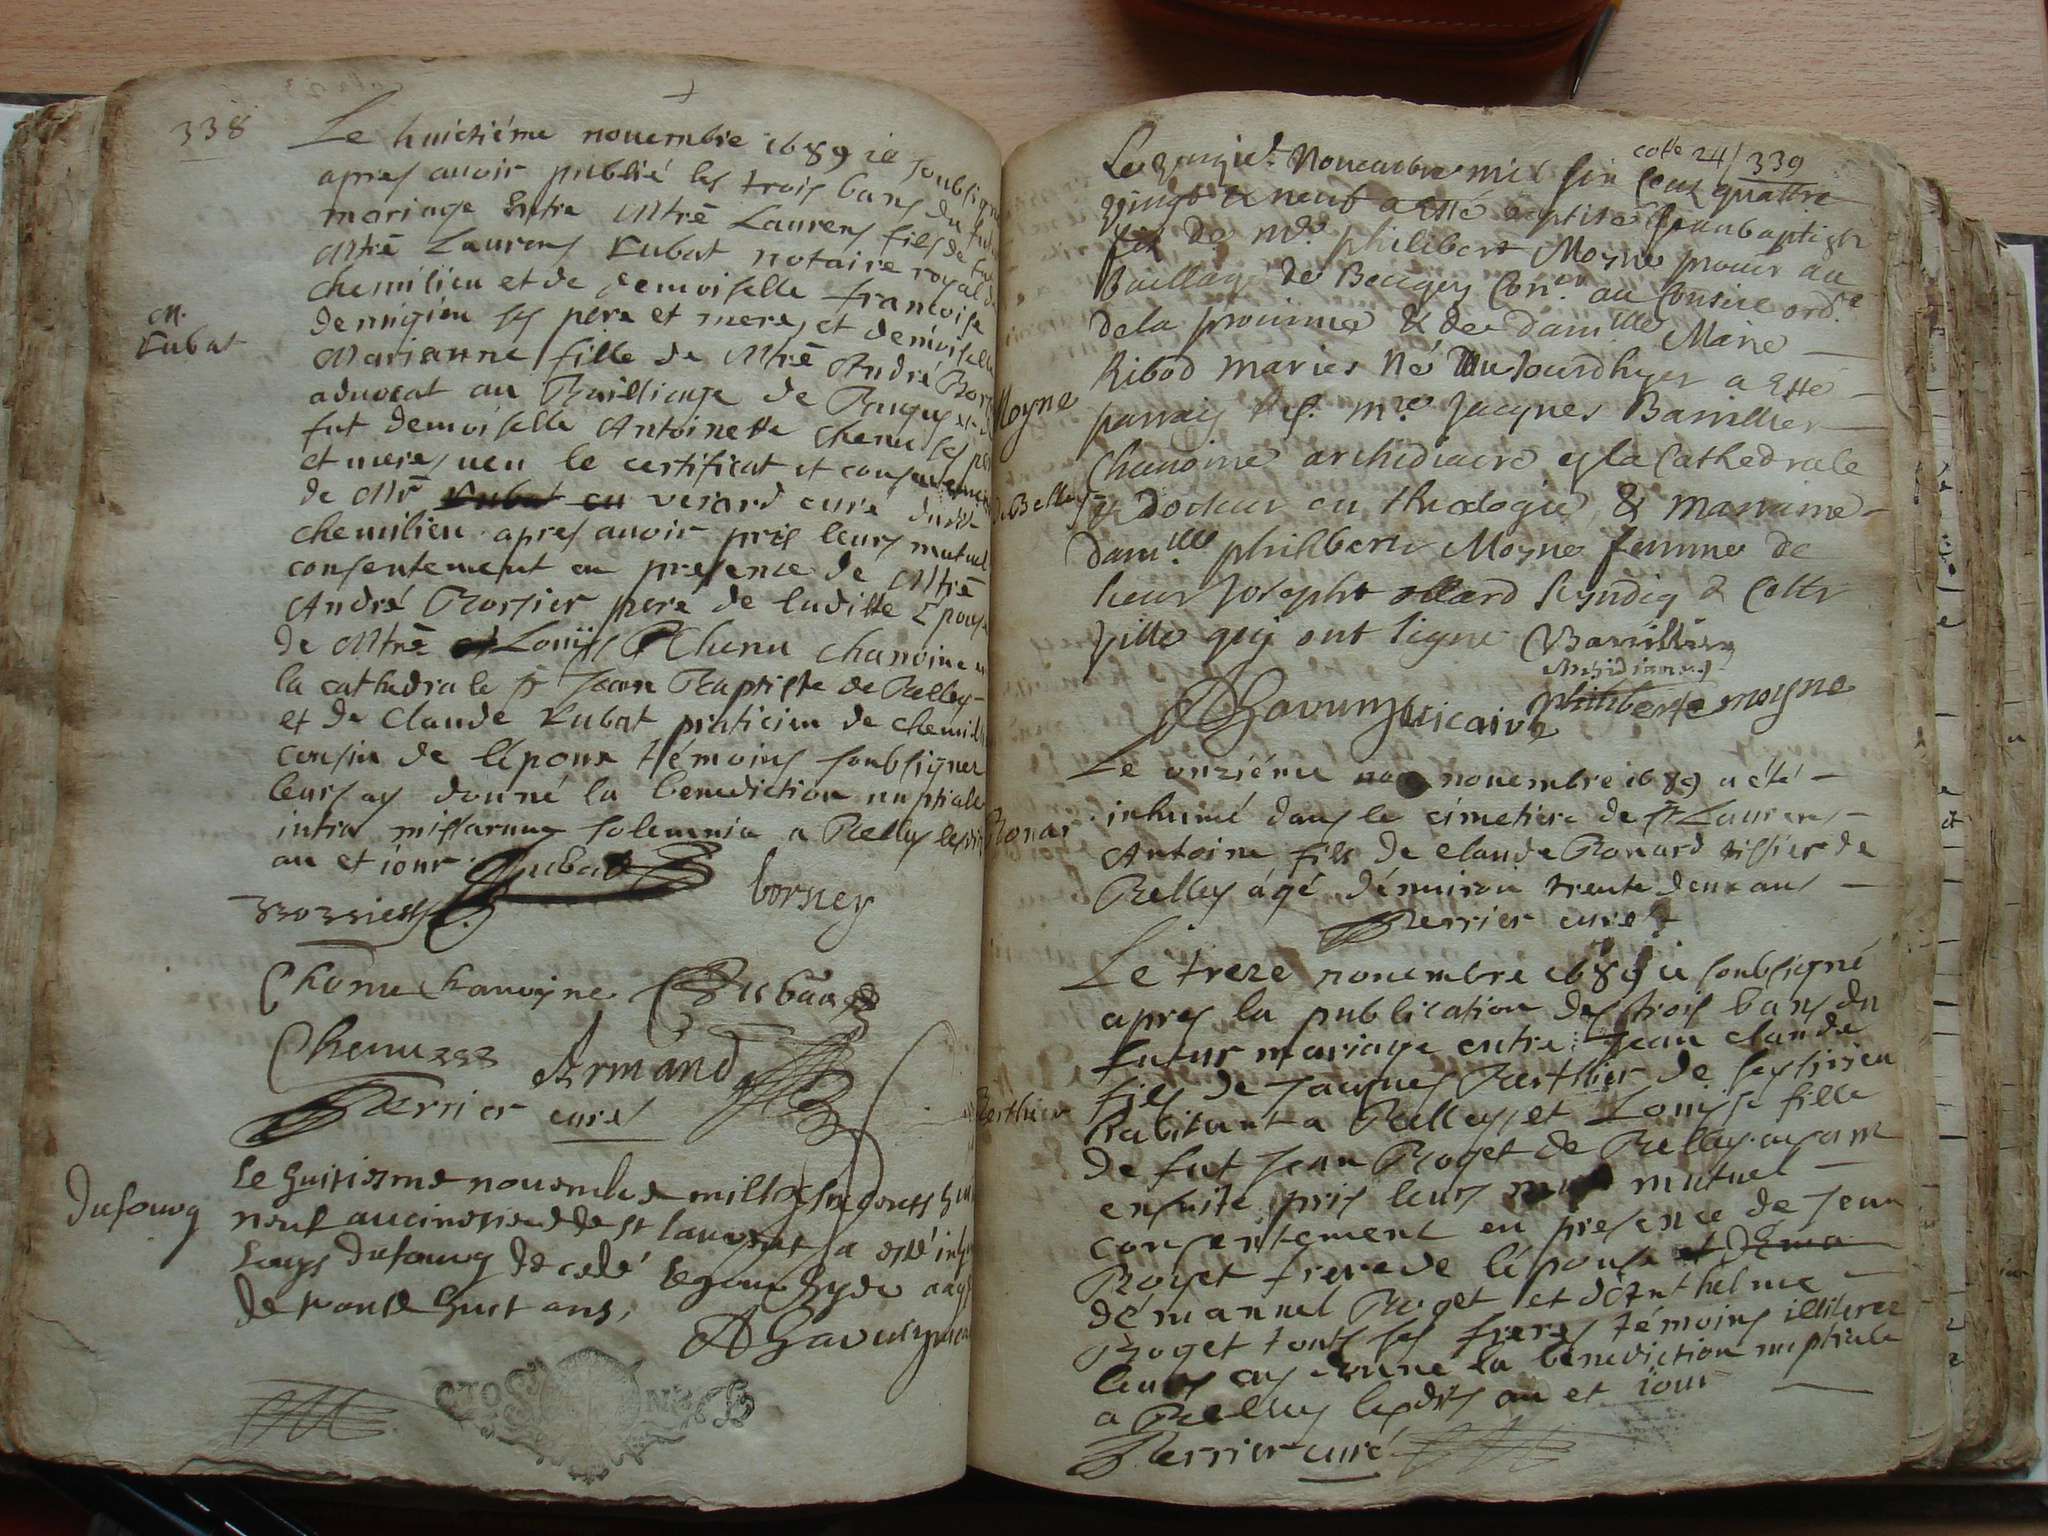 338
Le huictiéme nouembre 1689 ie soubsigné
apres auoir publié les trois bans du futur
mariage Entre Mtrē Laurens fils de
Mtrē Laurens Rubat notaire royal de
chemilieu et de demoiselle francoise
demigieu ses pere et mere, et demoiselle
Marianne fille de Mtrē André
aduocat au Bailliage de Bugey et de
fut demoiselle Antoinette Chenu ses pere
et mere, ueu le certificat et consentement
de Mrē Rubat cu verard curé dudit
chemilieu. apres auoir pris leurs mutuel
consentement en presence de Mtrē
André Borsier pere de laditte Epouse
de Mtrē Louijs Chenu chanoine en
la cathedrale St Jean Baptiste de Belley
et de Claude Rubat praticien de chemilieu
cousin de lépoux témoins soubsignez
leurs ay donné la benediction nuptiale
intra missarum solemnia a Belley lesdits
an et iour. Rubat
M.
Rubat
borsey
Chenu Chanoyne Rubat
Chenu Armand
Perrier curé
Dufourg
Le huitiesme nouembre mille six cents
neuf au cimetiere de st laurent a esté
Louys Dufourg decedé le jour hyer aagé
de huict ans,
cotte 24/339
Le Nouembre mil six cens quattre
vingt & neuf a esté baptisé Jeanbaptiste
fils de mre. philibert Moyne procur au
Baillage de Beugey Coner. au Consire ordre
dela prouince & de damlle Marie
Ribod mariés Né Aujourdhyer a Esté
parrain Mre Jacques Barillier
Chanoine archidiacre en la Cathedrale
& Docteur en theologie, & marraine
damlle philiberte Moyne femme de
sieur Joseph Allard Syndiq de Cette
ville qui ont signé Barillier
Archidiacre
vicaire philiberte moyne
Moyne
de Belley
Le onziéme nouembre 1689 a été
inhumé dans le cimetiere de St Laurens
Antoine fils de Claude Bonard tissier de
Belley ágé démuiron trente deux ans
Perrier curé
Bonar
Le treze nouembre 1689 ie soubsigné
apres la publication des trois bans du
futur mariage entre Jean Claude
fils de Jacques Berthier de
habitant a Belley, et Louise fille
de fut Jean Roget de Belley. ayant
ensuite pris leurs mutuel
consentement en presence de Jean
Roget frere de lépouse
démanuel Roget et dAnthelme
Roget touts ses freres témoins illiterez
leurs ay donné la benediction nuptiale
a Belley lesdits an et iour
Perrier curé
Berthier